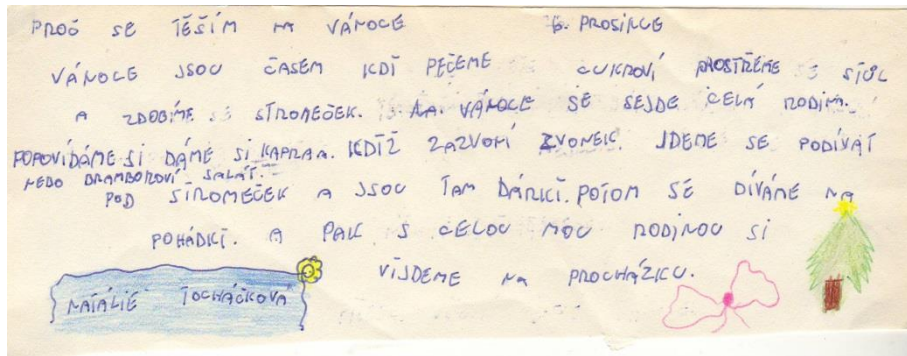 PROČ SE TĚŠÍM NA VÁNOCE 6. PROSINCE
VÁNOCE JSOU ČASEM KDÍ PEČEME CUKROVÍ PROSTŘEME SE STŮL
A ZDOBÍME SE STROMEČEK. NA VÁNOCE SE SEJDE CELÁ RODINA.
POPOVÍDÁME SI DÁME SI KAPRA. KDÍŽ ZAZVONÍ ZVONEK. JDEME SE PODÍVAT
NEBO BRAMBOROVÍ SALÁT.
POD STROMEČEK A JSOU TAM DÁRKÍ. POTOM SE DÍVÁME NA
POHÁDKÍ. A PAK S CELOU MOU RODINOU SI
VÍJDEME NA PROCHÁZKU.
NATÁLIE TOCHÁČKOVÁ